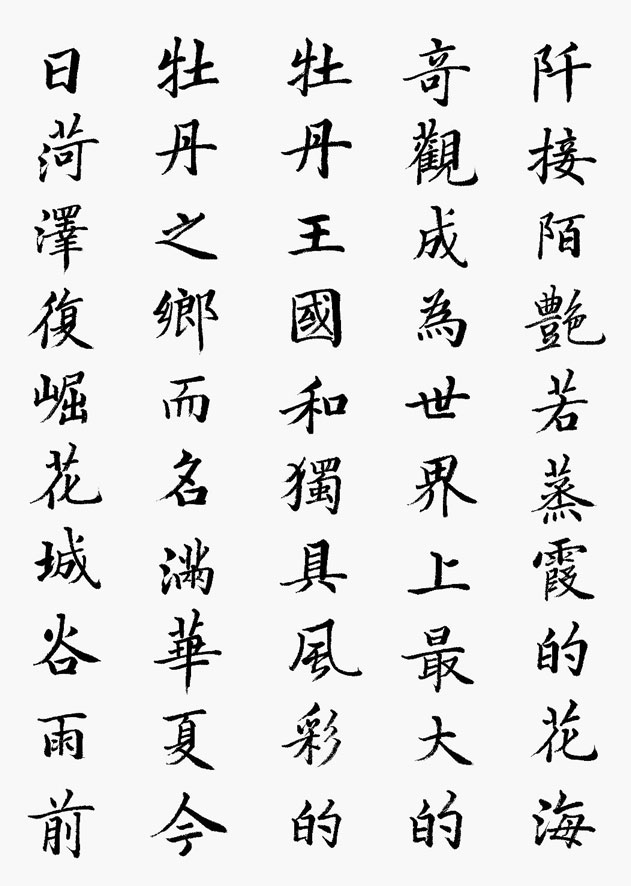 阡接陌艷若蒸霞的花海
奇觀成為世界上最大的
牡丹王國和獨具風彩的
牡丹之鄉而名滿華夏今
日菏澤復崛花城谷雨前